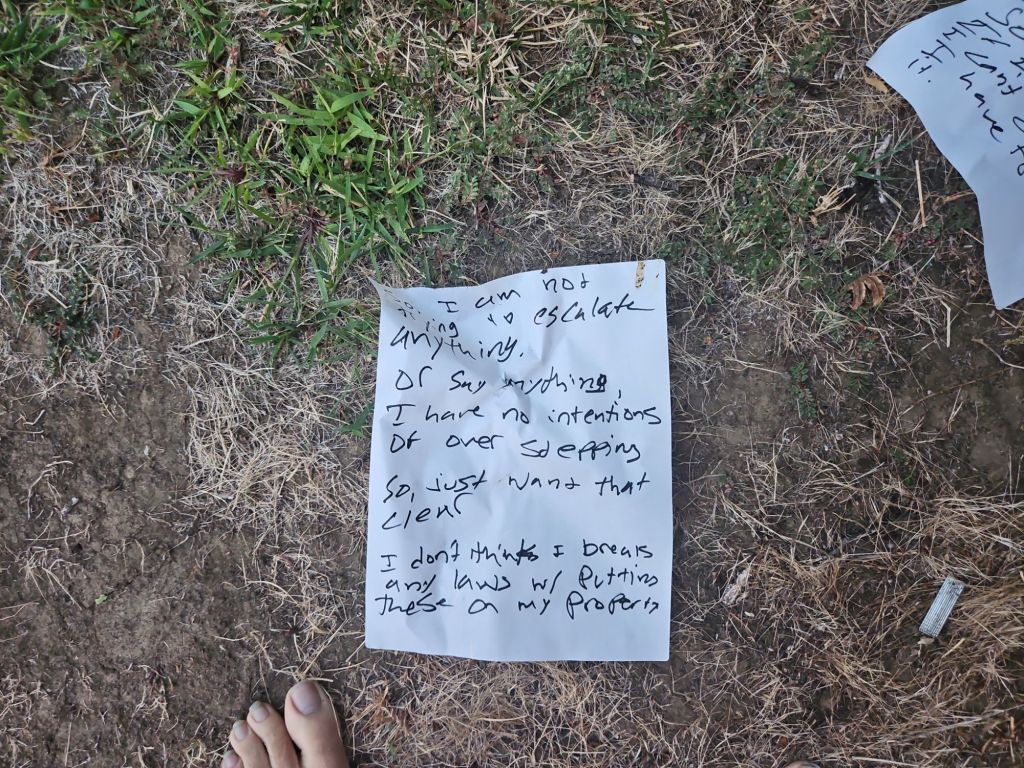 I am not
trying to escalate
anything.
Or say anything,
I have no intentions
of over stepping
So, just want that
clear
I don't think I break
any laws w/ putting
these on my property
can't
have to